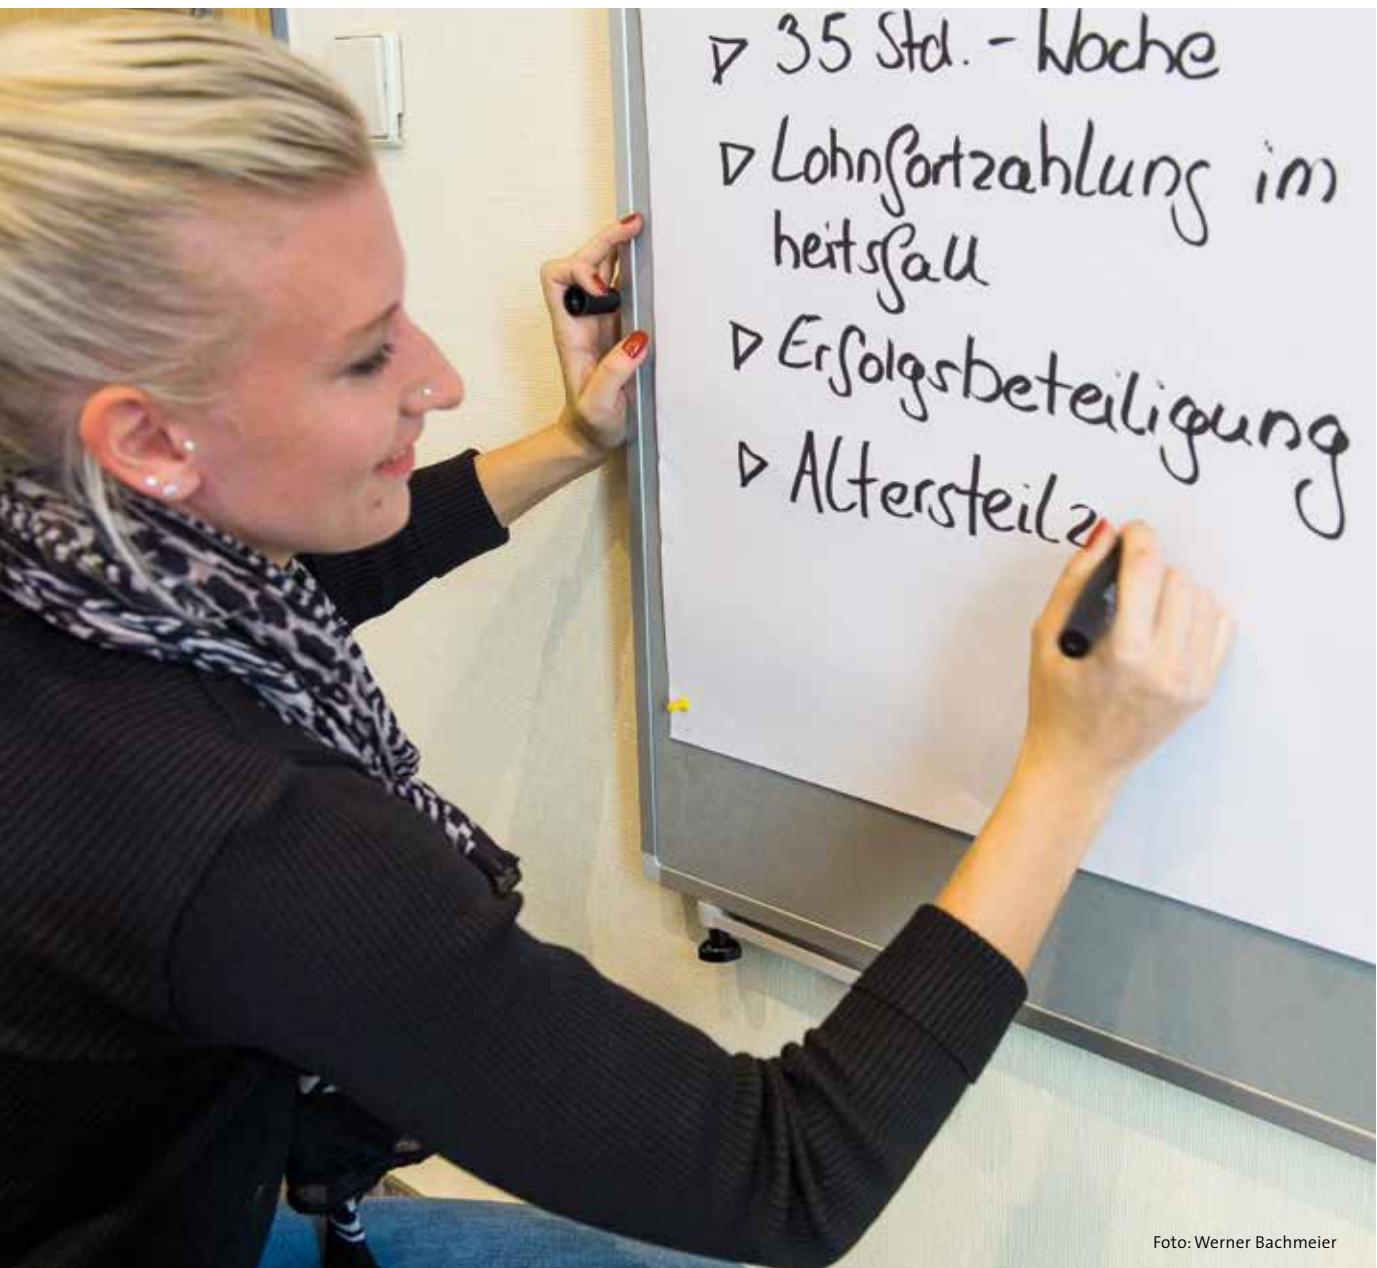 ▷ 35 Std. - Woche
▷ Lohnfortzahlung im
heitsfall
▷ Erfolgsbeteiligung
▷ Altersteilz
Foto: Werner Bachmeier